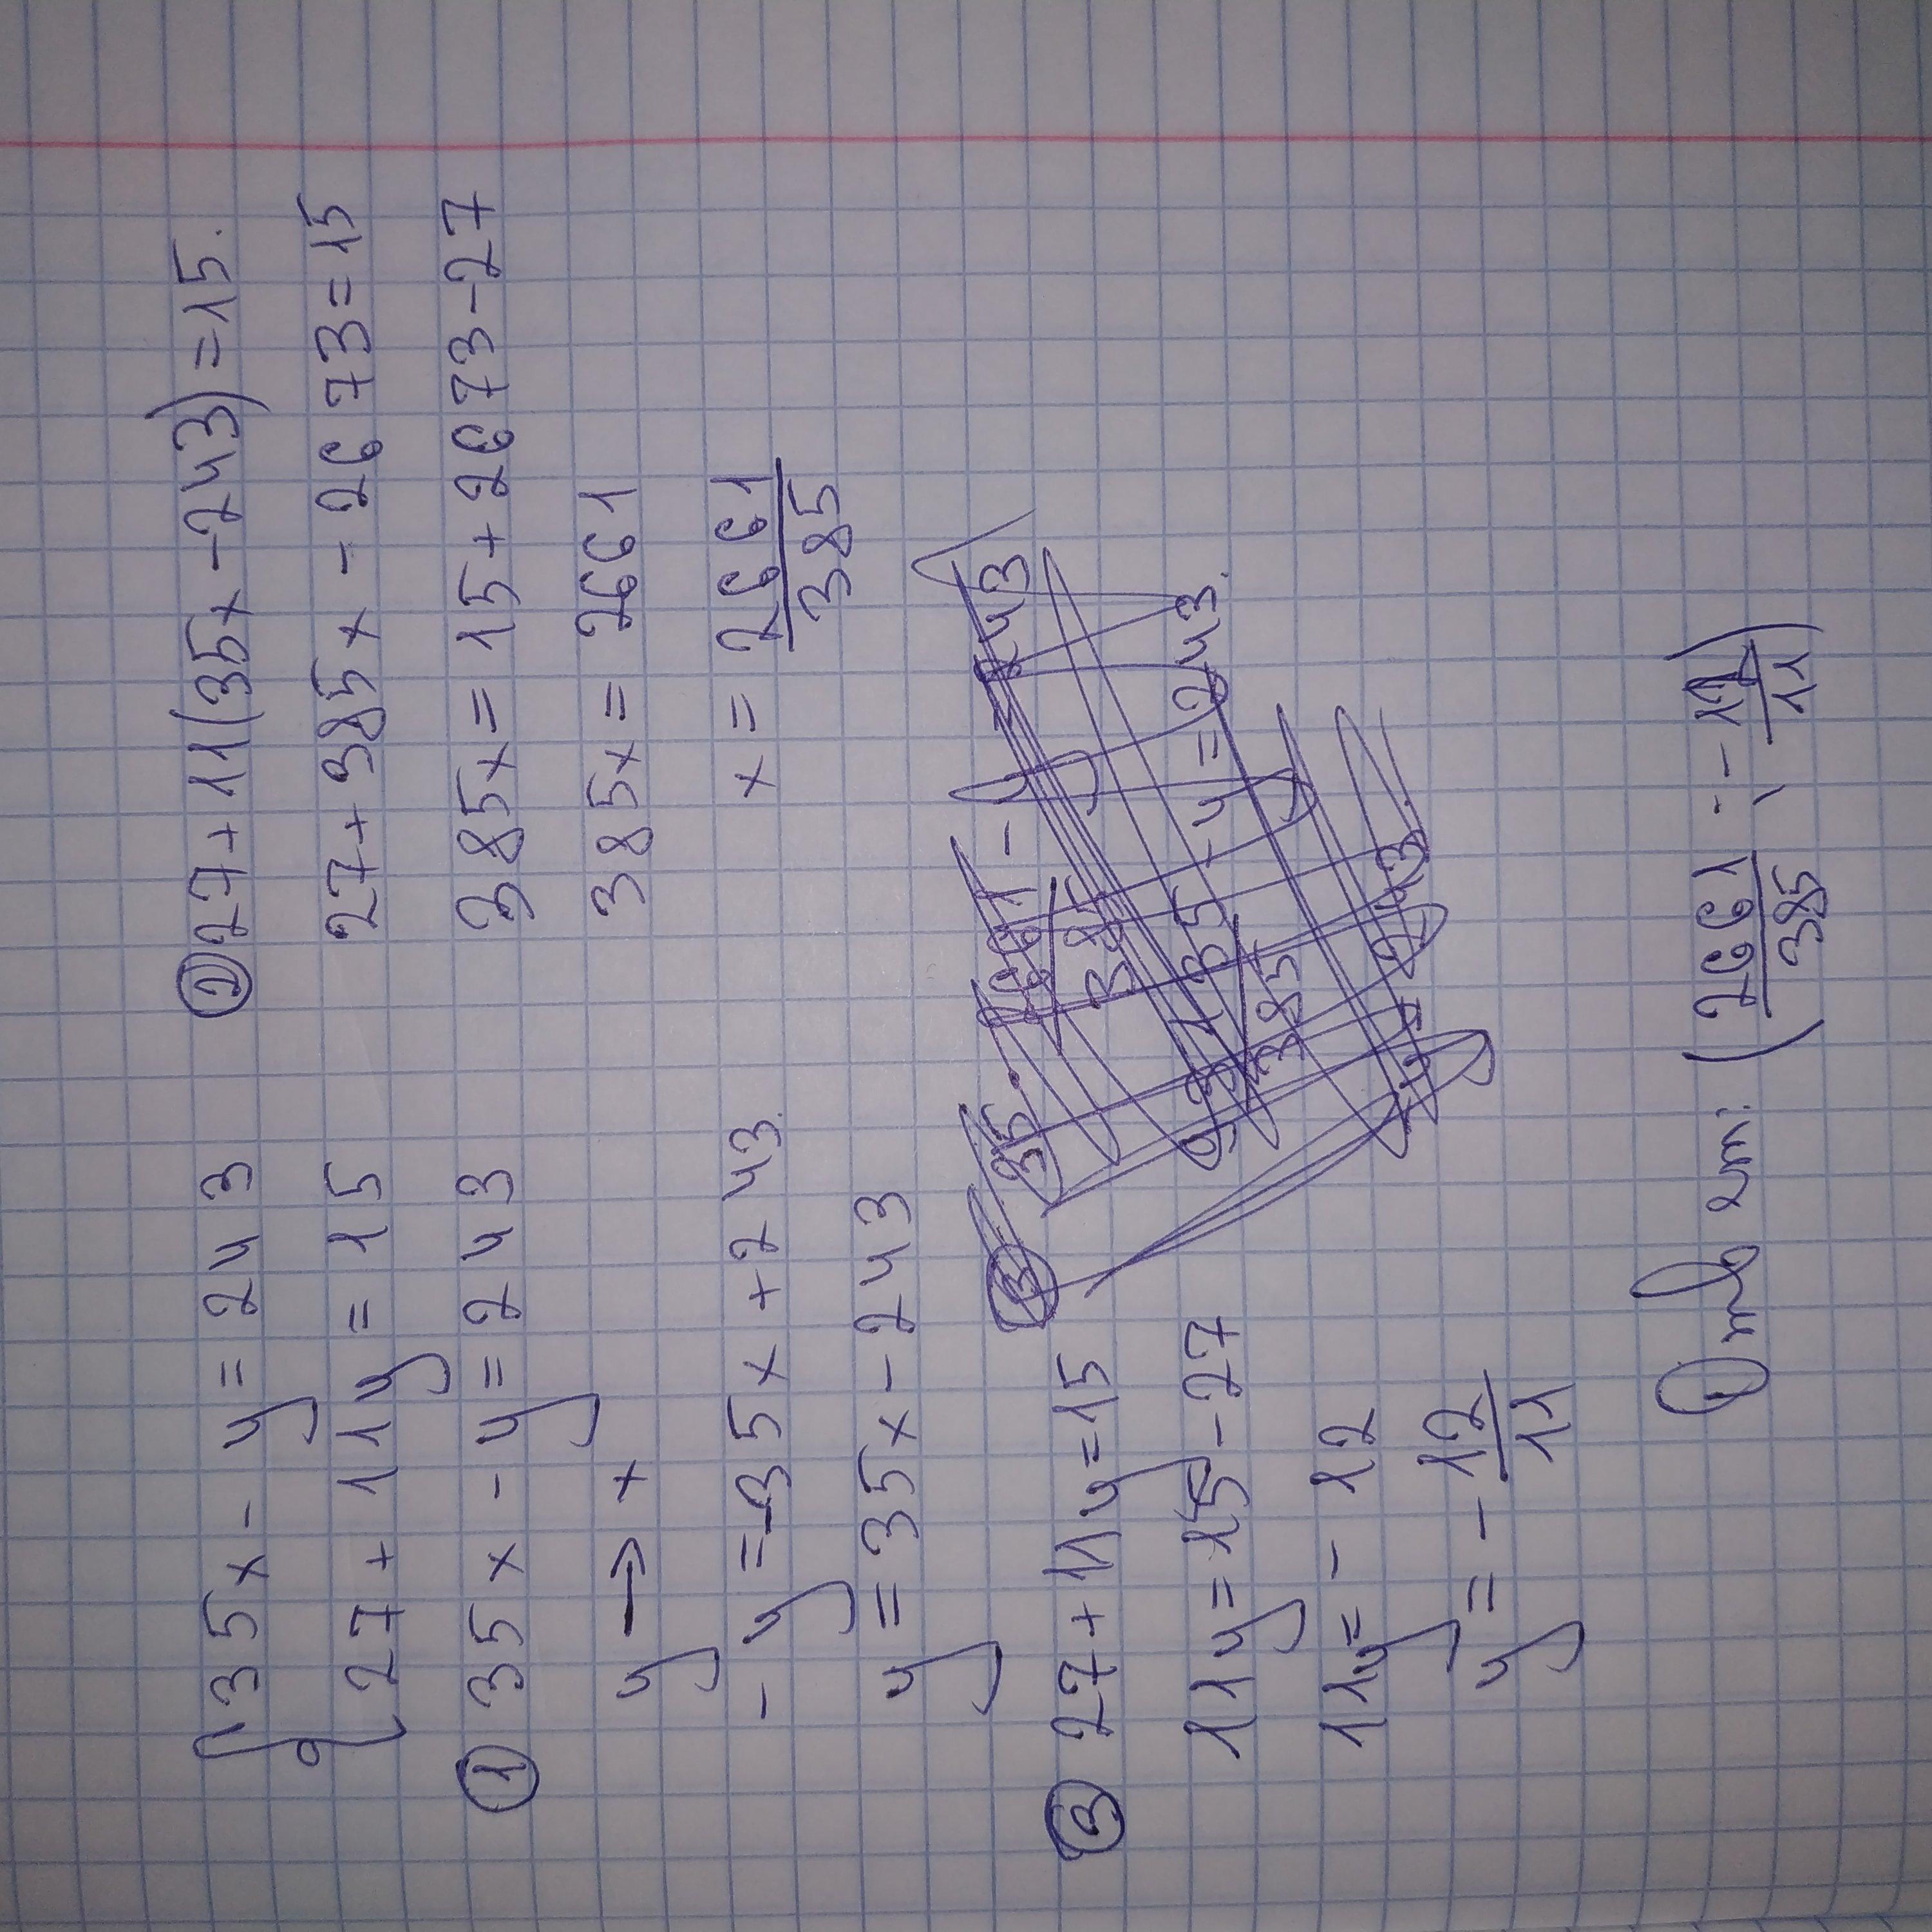 35x - y = 243
27 + 11y = 15
① 35x - y = 243
y → x
-y = -35x + 243
y = 35x - 243
② 27 + 11(35x - 243) = 15.
27 + 385x - 2673 = 15
385x = 15 + 2673 - 27
385x = 2661
x = 2661/385
③ 27 + 11y = 15
11y = 15 - 27
11y = - 12
y = - 12/11
Ответ: (2661/385 ; - 12/11)